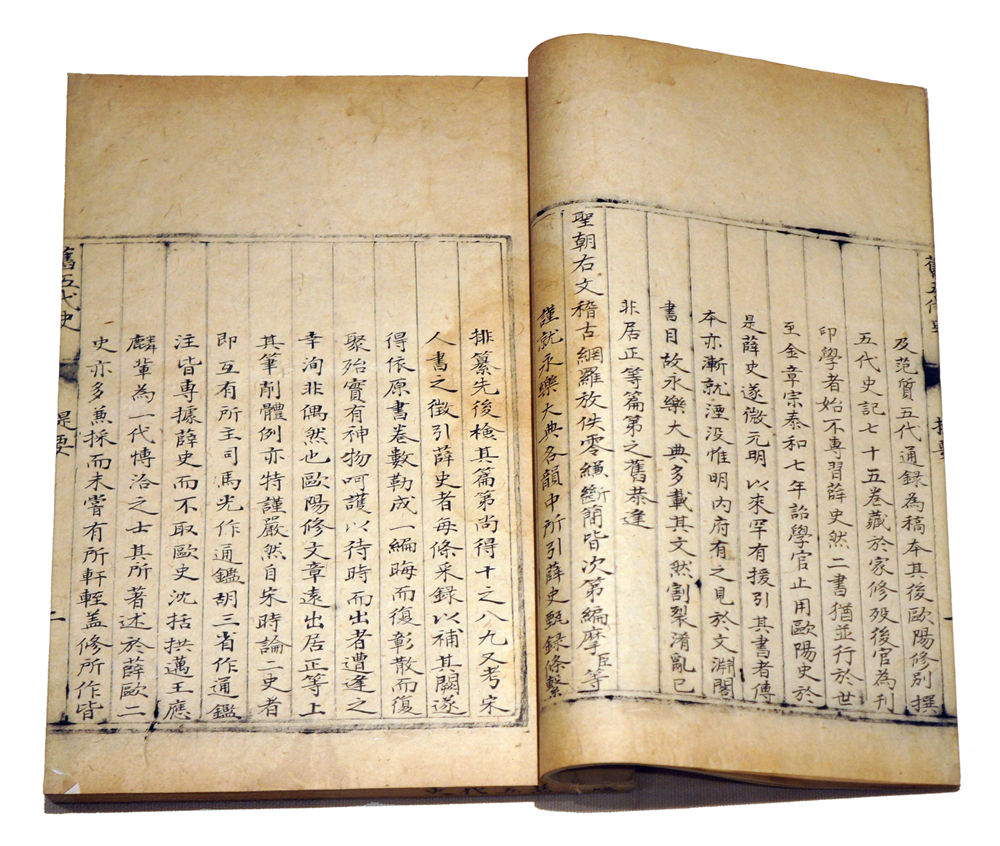 舊五代史
提要
及范質五代通錄為稿本其後歐陽修別撰
五代史記七十五卷藏於家修歿後官為刊
印學者始不專習薛史然二書猶並行於世
至金章宗泰和七年詔學官止用歐陽史於
是薛史遂微元明以來罕有援引其書者傳
本亦漸就湮沒惟明內府有之見於文淵閣
書目故永樂大典多載其文然割裂淆亂已
非居正等篇第之舊恭逢
聖朝右文稽古網羅放佚零縑斷簡皆次第編摩臣等
謹就永樂大典各韻中所引薛史甄錄條繫
排纂先後檢其篇第尚得十之八九又考宋
人書之徵引薛史者每條采錄以補其闕遂
得依原書卷數勒成一編晦而復彰散而復
聚殆實有神物呵護以待時而出者遭逢之
幸洵非偶然也歐陽修文章遠出居正等上
其筆削體例亦特謹嚴然自宋時論二史者
即互有所主司馬光作通鑑胡三省作通鑑
注皆專據薛史而不取歐史沈括拱邁王應
麟輩為一代博洽之士其所著述於薛歐二
史亦多兼採而未嘗有所軒輊蓋修所作皆
舊五代史
提要